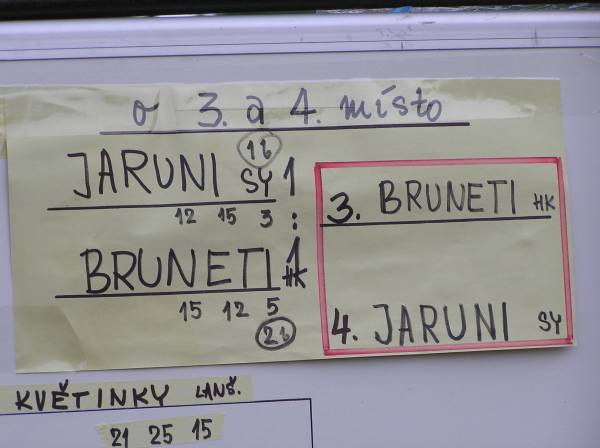 o 3. a 4. místo
1b
JARUNI SY 1
12 15 3 :
BRUNETI HK 1
15 12 5
2b
3. BRUNETI HK
4. JARUNI SY
KVĚTINKY LANŠ.
21 25 15